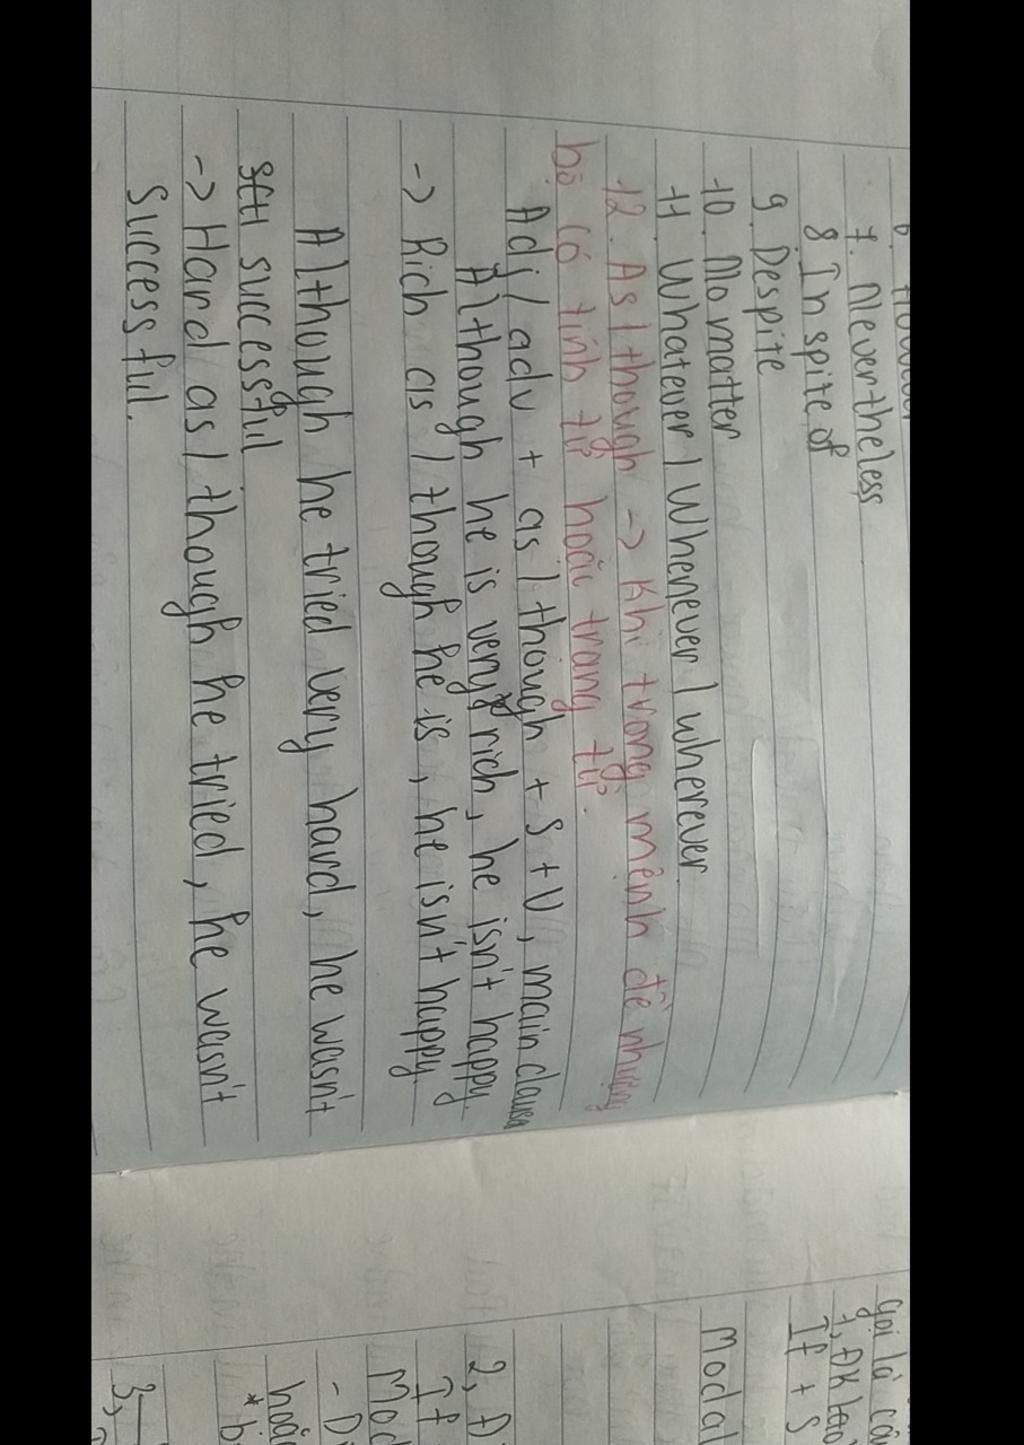 7. Nevertheless
8 In spite of
9. Despite
10. No matter
11. Whatever / Whenever / wherever
12. As / though -> Khi trong mệnh đề nhượng
bộ có tính từ hoặc trạng từ.
Adj / adv + as / though + S + V, main clause
Although he is very rich, he isn't happy.
-> Rich as / though he is, he isn't happy.
Although he tried very hard, he wasn't
successful
-> Hard as / though he tried, he wasn't
Successful.
gọi là câ
If + S
Modal
2, Đ
If
Mod
- D
hoặc
* b
3,